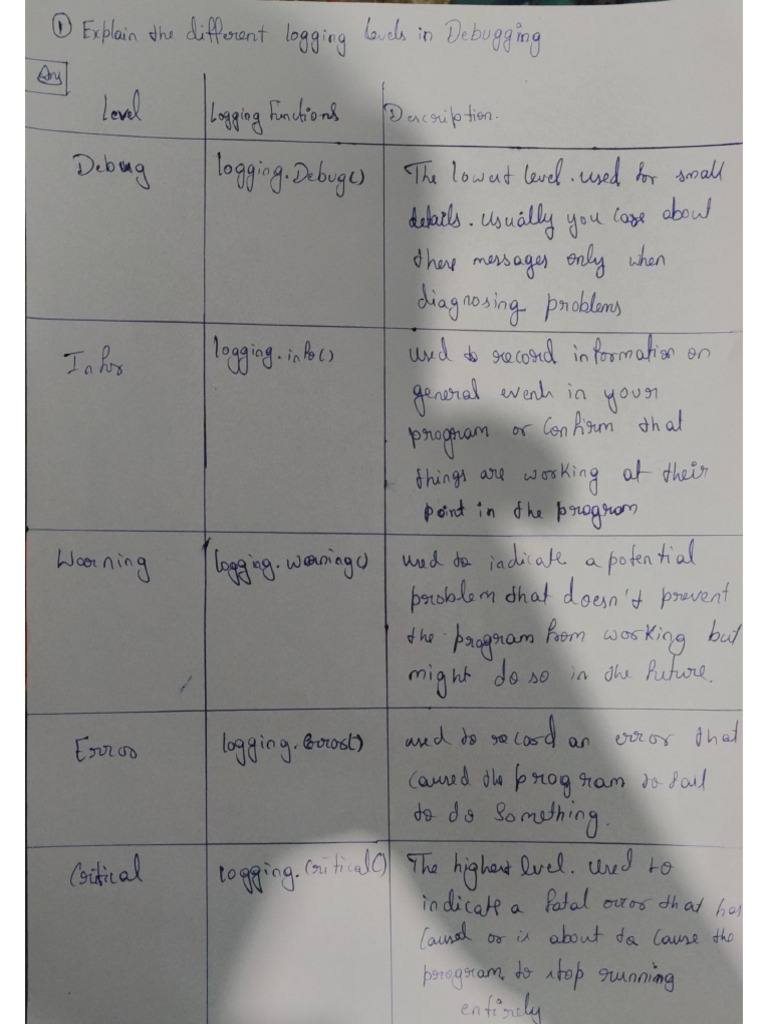 ① Explain the different logging levels in Debugging
Ans
Level
Logging Functions
Description.
Debug
logging.Debug()
The lowest level. used for small
details. usually you care about
these messages only when
diagnosing problems
Info
logging.info()
used to record information on
general events in your
program or confirm that
things are working at their
point in the program
Warning
logging.warning()
used to indicate a potential
problem that doesn't prevent
the program from working but
might do so in the future.
Error
logging.error()
used to record an error that
caused the program to fail
to do something.
Critical
logging.critical()
The highest level. Used to
indicate a fatal error that has
caused or is about to cause the
program to stop running
entirely